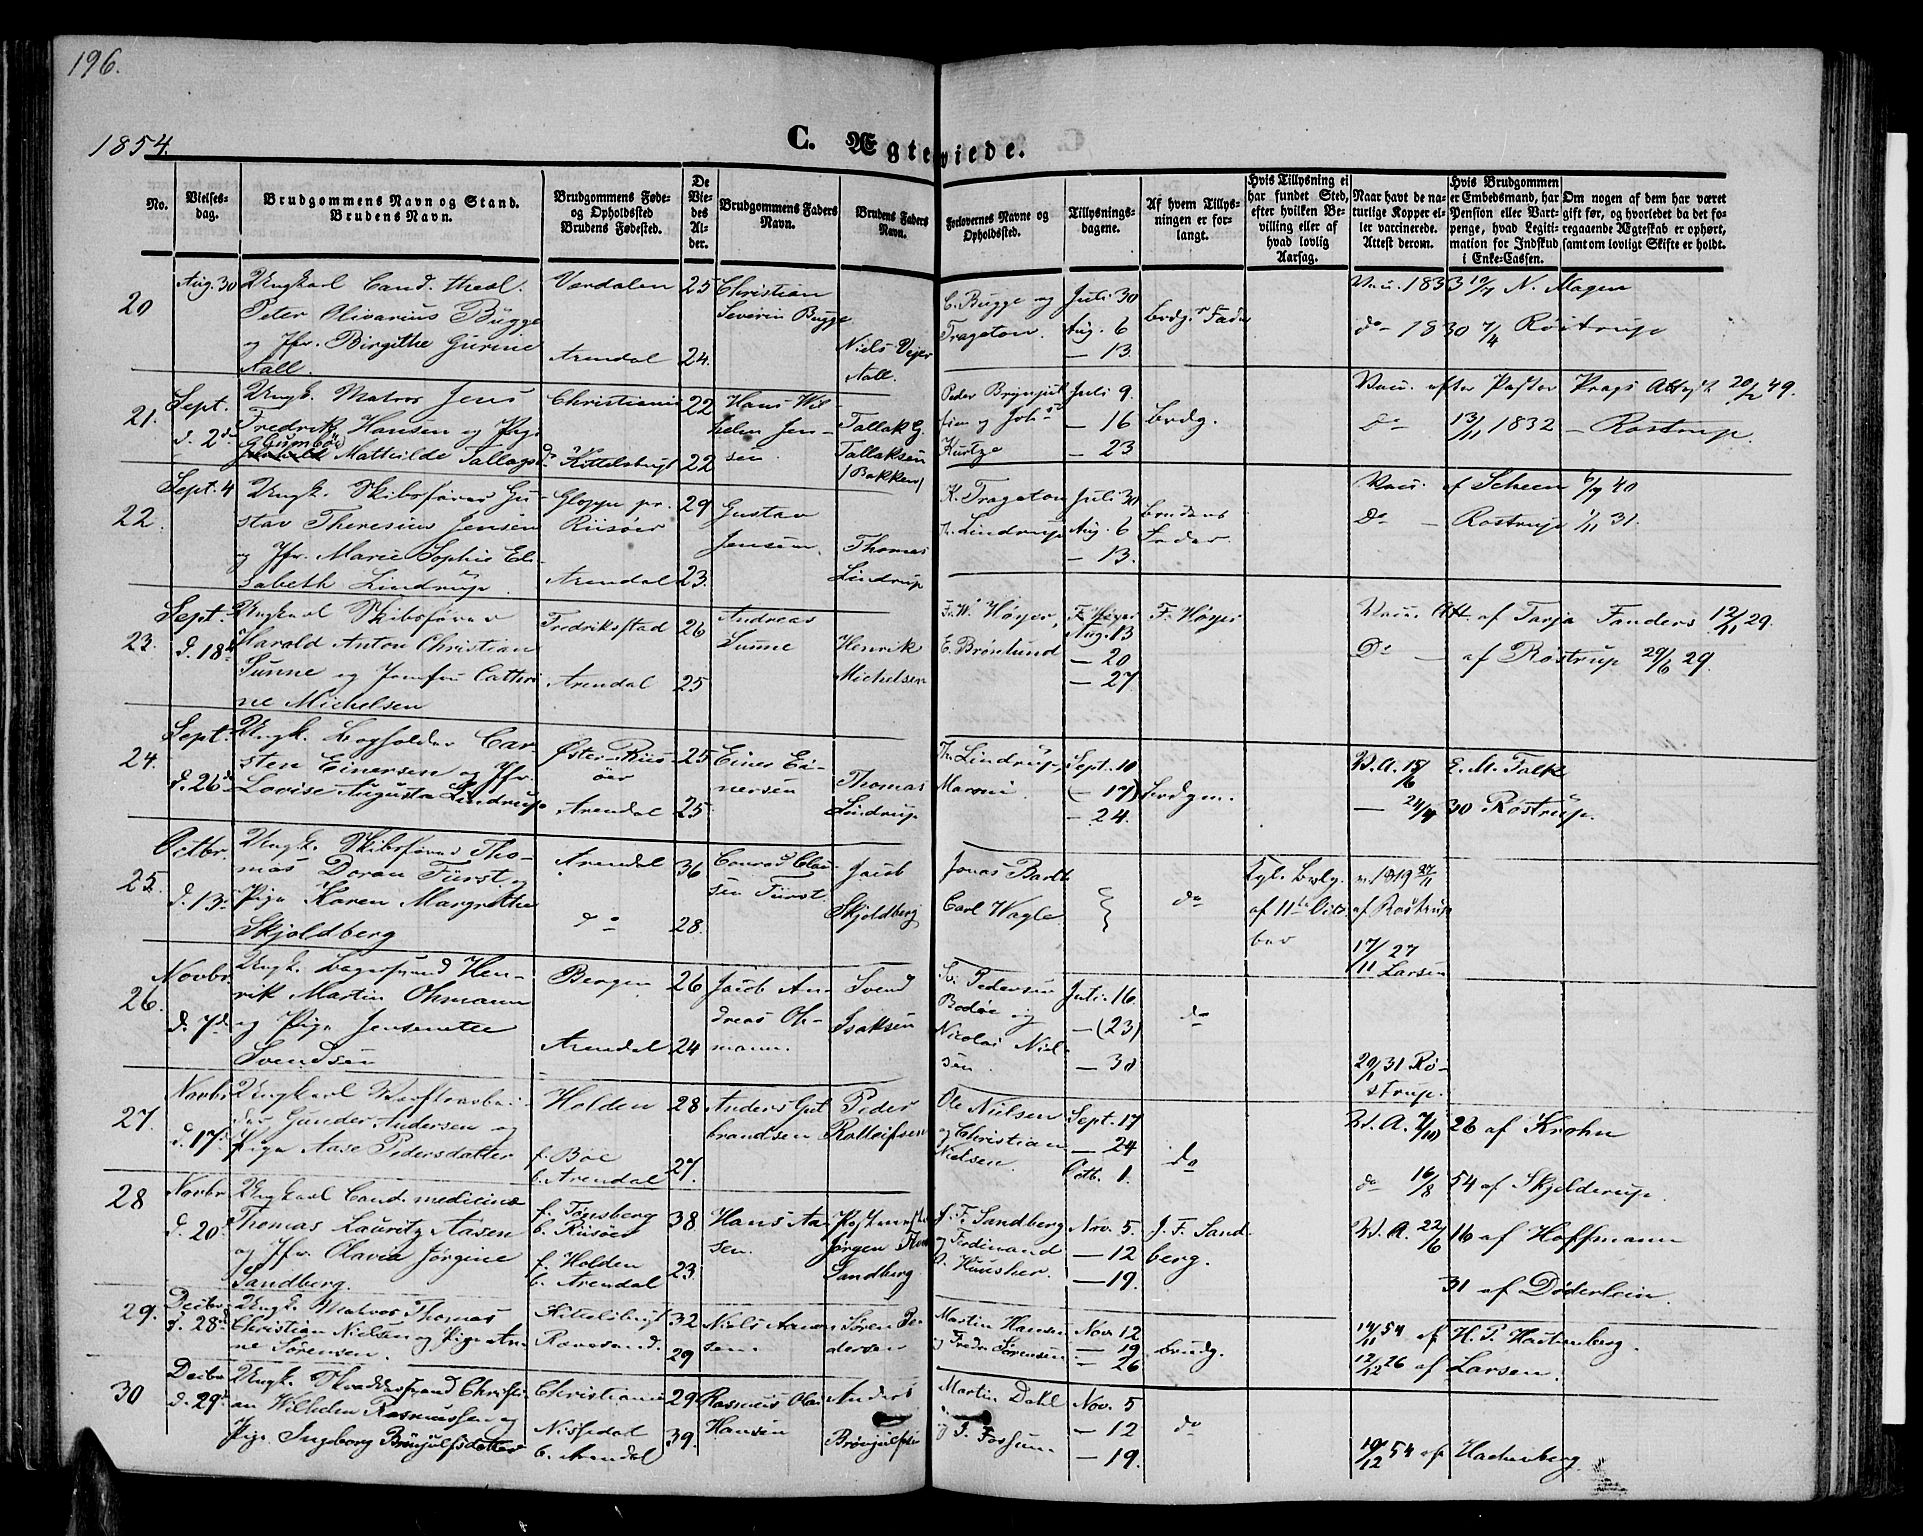 196.
1854.
C. Ægteviede.
No.
Vielses-
dag.
Brudgommens Navn og Stand.
Brudens Navn.
Brudgommens Føde-
og Opholdssted
Brudens Fødested.
De
Vie-
des
Al-
der.
Brudgommens Faders
Navn.
Brudens Faders
Navn.
Forlovernes Navne og
Opholdssted.
Tillysnings-
dagene.
Af hvem Tillys-
ningen er for-
langt.
Hvis Tillysning ei
har fundet Sted,
efter hvilken Be-
villing eller af
hvad lovlig
Aarsag.
Naar havt de na-
turlige Kopper el-
ler vaccinerede.
Attest derom.
Hvis Brudgommen
er Embedsmand, har
Pension eller Vart-
penge, hvad Legiti-
mation for Indskud
i Enke-Cassen.
Om nogen af dem har været
gift før, og hvorledet da det fo-
regaaende Ægteskab er ophørt,
samt om lovligt Skifte er holdt.
20
Aug. 30
Ungkarl Cand. theol.
Peter Olivarius Bugge
og Jfr. Birgithe Gurine
Aall.
Værdalen
Arendal
25
24.
Christian
Severin Bugge
Niels Vejer
Aall.
C. Bugge og
Trageton.
Juli 30
Aug. 6
— 13.
Brdg. Fader
Vacc. 1833 10/7 N. Magen
do 1830 7/4 Røstrup
21.
Sept.
d. 2d
Ungk. Matros Jens
Fredrik Hansen og Pige
Gumbør Mathilde Tallags
Christiania
Kittelsbugt
22
22
Hans Wil-
helm Jen-
sen.
Tallak G.
Tallaksen
(Bakken)
Peder Brynjul
sen og Joh.
Kurtze
Juli 9.
— 16
— 23
Brdg.
Vacc. efter Pastor Prags Attest 20/2 49.
Do 13/11 1832 — Røstrup.
22.
Sept. 4
Ungk. Skibsfører Gu-
stav Theresius Jensen
og Jfr. Marie Sophie Eli-
sabeth Lindrup.
Gloppe pr.
Riisøer
Arendal
29
23.
Gustav
Jensen.
Thomas
Lindrup
K. Trageton
Th. Lindrup
Juli 30
Aug. 6
— 13.
Brudens
Fader.
Vacc. af Scheen 6/9 40
Do — Rostrup 1/11 31.
23.
Sept.
d. 18d
Ungkarl Skibsfører
Harald Anton Christian
Sunne og Jomfru Cathri
ne Michelsen
Fredriksstad
Arendal
26
25
Andreas
Sunne
Henrik
Michelsen
F. W. Høyer,
E. Brønlund
F. Høyer
Aug. 13
— 20
— 27
F. Høyer
Vacc. Att. af Tarje Fanders 12/11 29.
Do — af Røstrup 29/6 29.
24.
Sept.
d. 26d
Ungk. Bogholder Car-
sten Einersen og Jfr.
Lovise Augusta Lindrup
Øster-Riis-
öer
Arendal
25
25
Einer Ei-
nersen
Thomas
Lindrup
Th. Lindrup,
Maroni.
Sept. 10
(— 17)
— 24.
Brdgm.
V. A. 15/6 E. M. Falk
— 24/4 30 Røstrup.
25.
Octbr.
d. 13d
Ungk. Skibsfører Tho-
mas Doran Fürst og
Pige Karen Margrethe
Skjoldberg
Arendal
do
36
28.
Conrad Clau
sen Fürst
Jacob
Skjoldberg
Jonas Barth
Carl Wagle
do
Kgl. Bevlg.
af 11te Octo
ber
v. 1819 27/11
af Røstrup
17/11 27
Larsen
26.
Novbr.
d. 7d
Ungk. Bagersvend Hen-
rik Martin Ohmann
og Pige Jensenette
Svendsen
Bergen
Arendal
26
24
Jacob An
dreas Oh-
mann.
Svend
Isaksen
S. Pedersen
Bodøe og
Nicolai Niel
sen.
Juli. 16
— (23)
— 30
do
29/1 31 Rø-
strup.
27.
Novbr
d. 17d
Ungkarl Værftsarbei-
der Gunder Andersen og
Pige Aase Pedersdatter
Holden
f. Böe
b. Arendal
28
27.
Anders Gul
brandsen
Peder
Rolleifsen
Ole Nielsen
og Christian
Nielsen.
Sept. 17
— 24
Octb. 1.
do
V. A. 7/10 26 af Krohn
do 16/8 54 af Skjelderup.
28
Novbr
d. 20d
Ungkarl Cand. medicinæ
Thomas Lauritz Aasen
og Jfr. Olava Jørgine
Sandberg.
f. Tønsberg
b. Riisöer
f. Holden
b. Arendal
38
23.
Hans Aa-
sen.
Postmester
Jørgen
Sandberg
J. F. Sandberg
og Ferdinand
Nov. 5.
— 12
— 19.
J. F. Sand
berg.
V. A. 22/6 16 af Hoffmann
31 af Døderlein.
29.
Decbr
d. 28d
Ungk. Matros Thomas
Christian Nielsen og Pige An
ne Sørensen.
Kittelsbugt
Ravesand.
32
29
Niels Aanon
sen.
Søren Pe
dersen
Martin Hansen
og Fredr. Sørensen
Nov. 12
— 19
— 26
Brudg.
14/11 54 af H. P. Hachenberg.
12/12 26 af Larsen.
30
Decbr
d. 29d
Ungk. Skræddersvend Christi-
an Wilhelm Rasmussen og
Pige Ingeborg Brönjulfsdatter
Christiania
Nissedal
b. Arendal
29
39.
Rasmus Olai
Hansen
Anders
Brönjulfsen
Martin Dahl
og T. Fossum
Nov. 5
— 12
— 19.
do
19/12 54 af Hachenberg